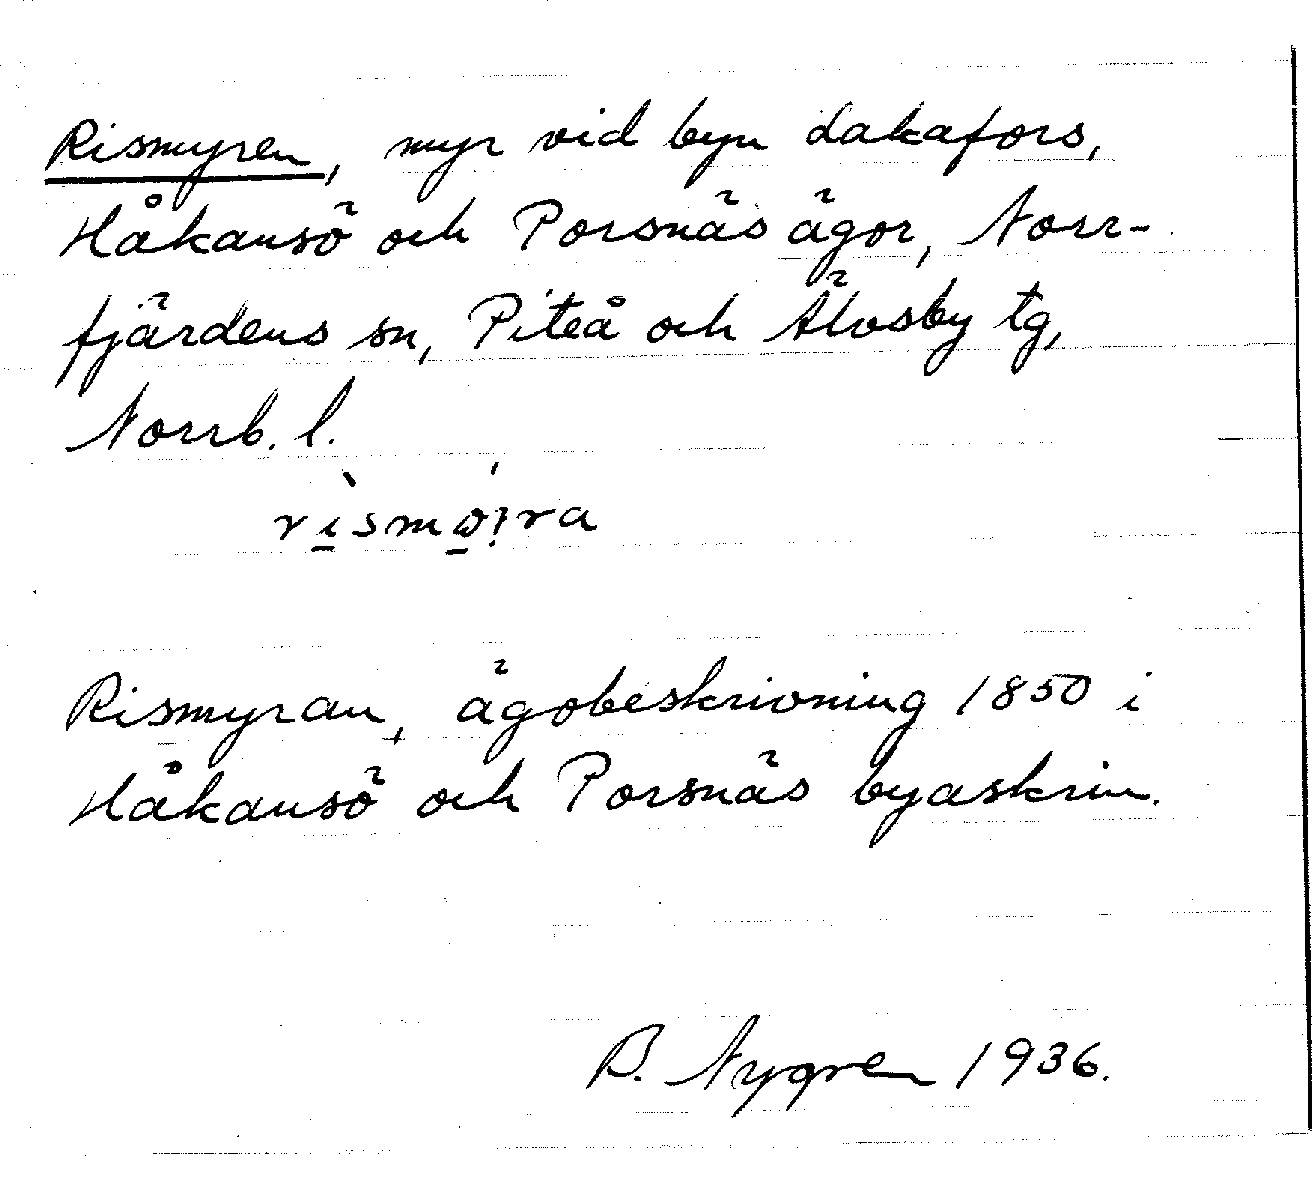 Rismyren, myr vid byn Lakafors,
Håkansö och Porsnäs ägor, Norr-
fjärdens sn, Piteå och Älvsby tg,
Norrb. l.
Rismyran, ägobeskrivning 1850 i
Håkansö och Porsnäs byaskrin.
B. Nygren 1936.